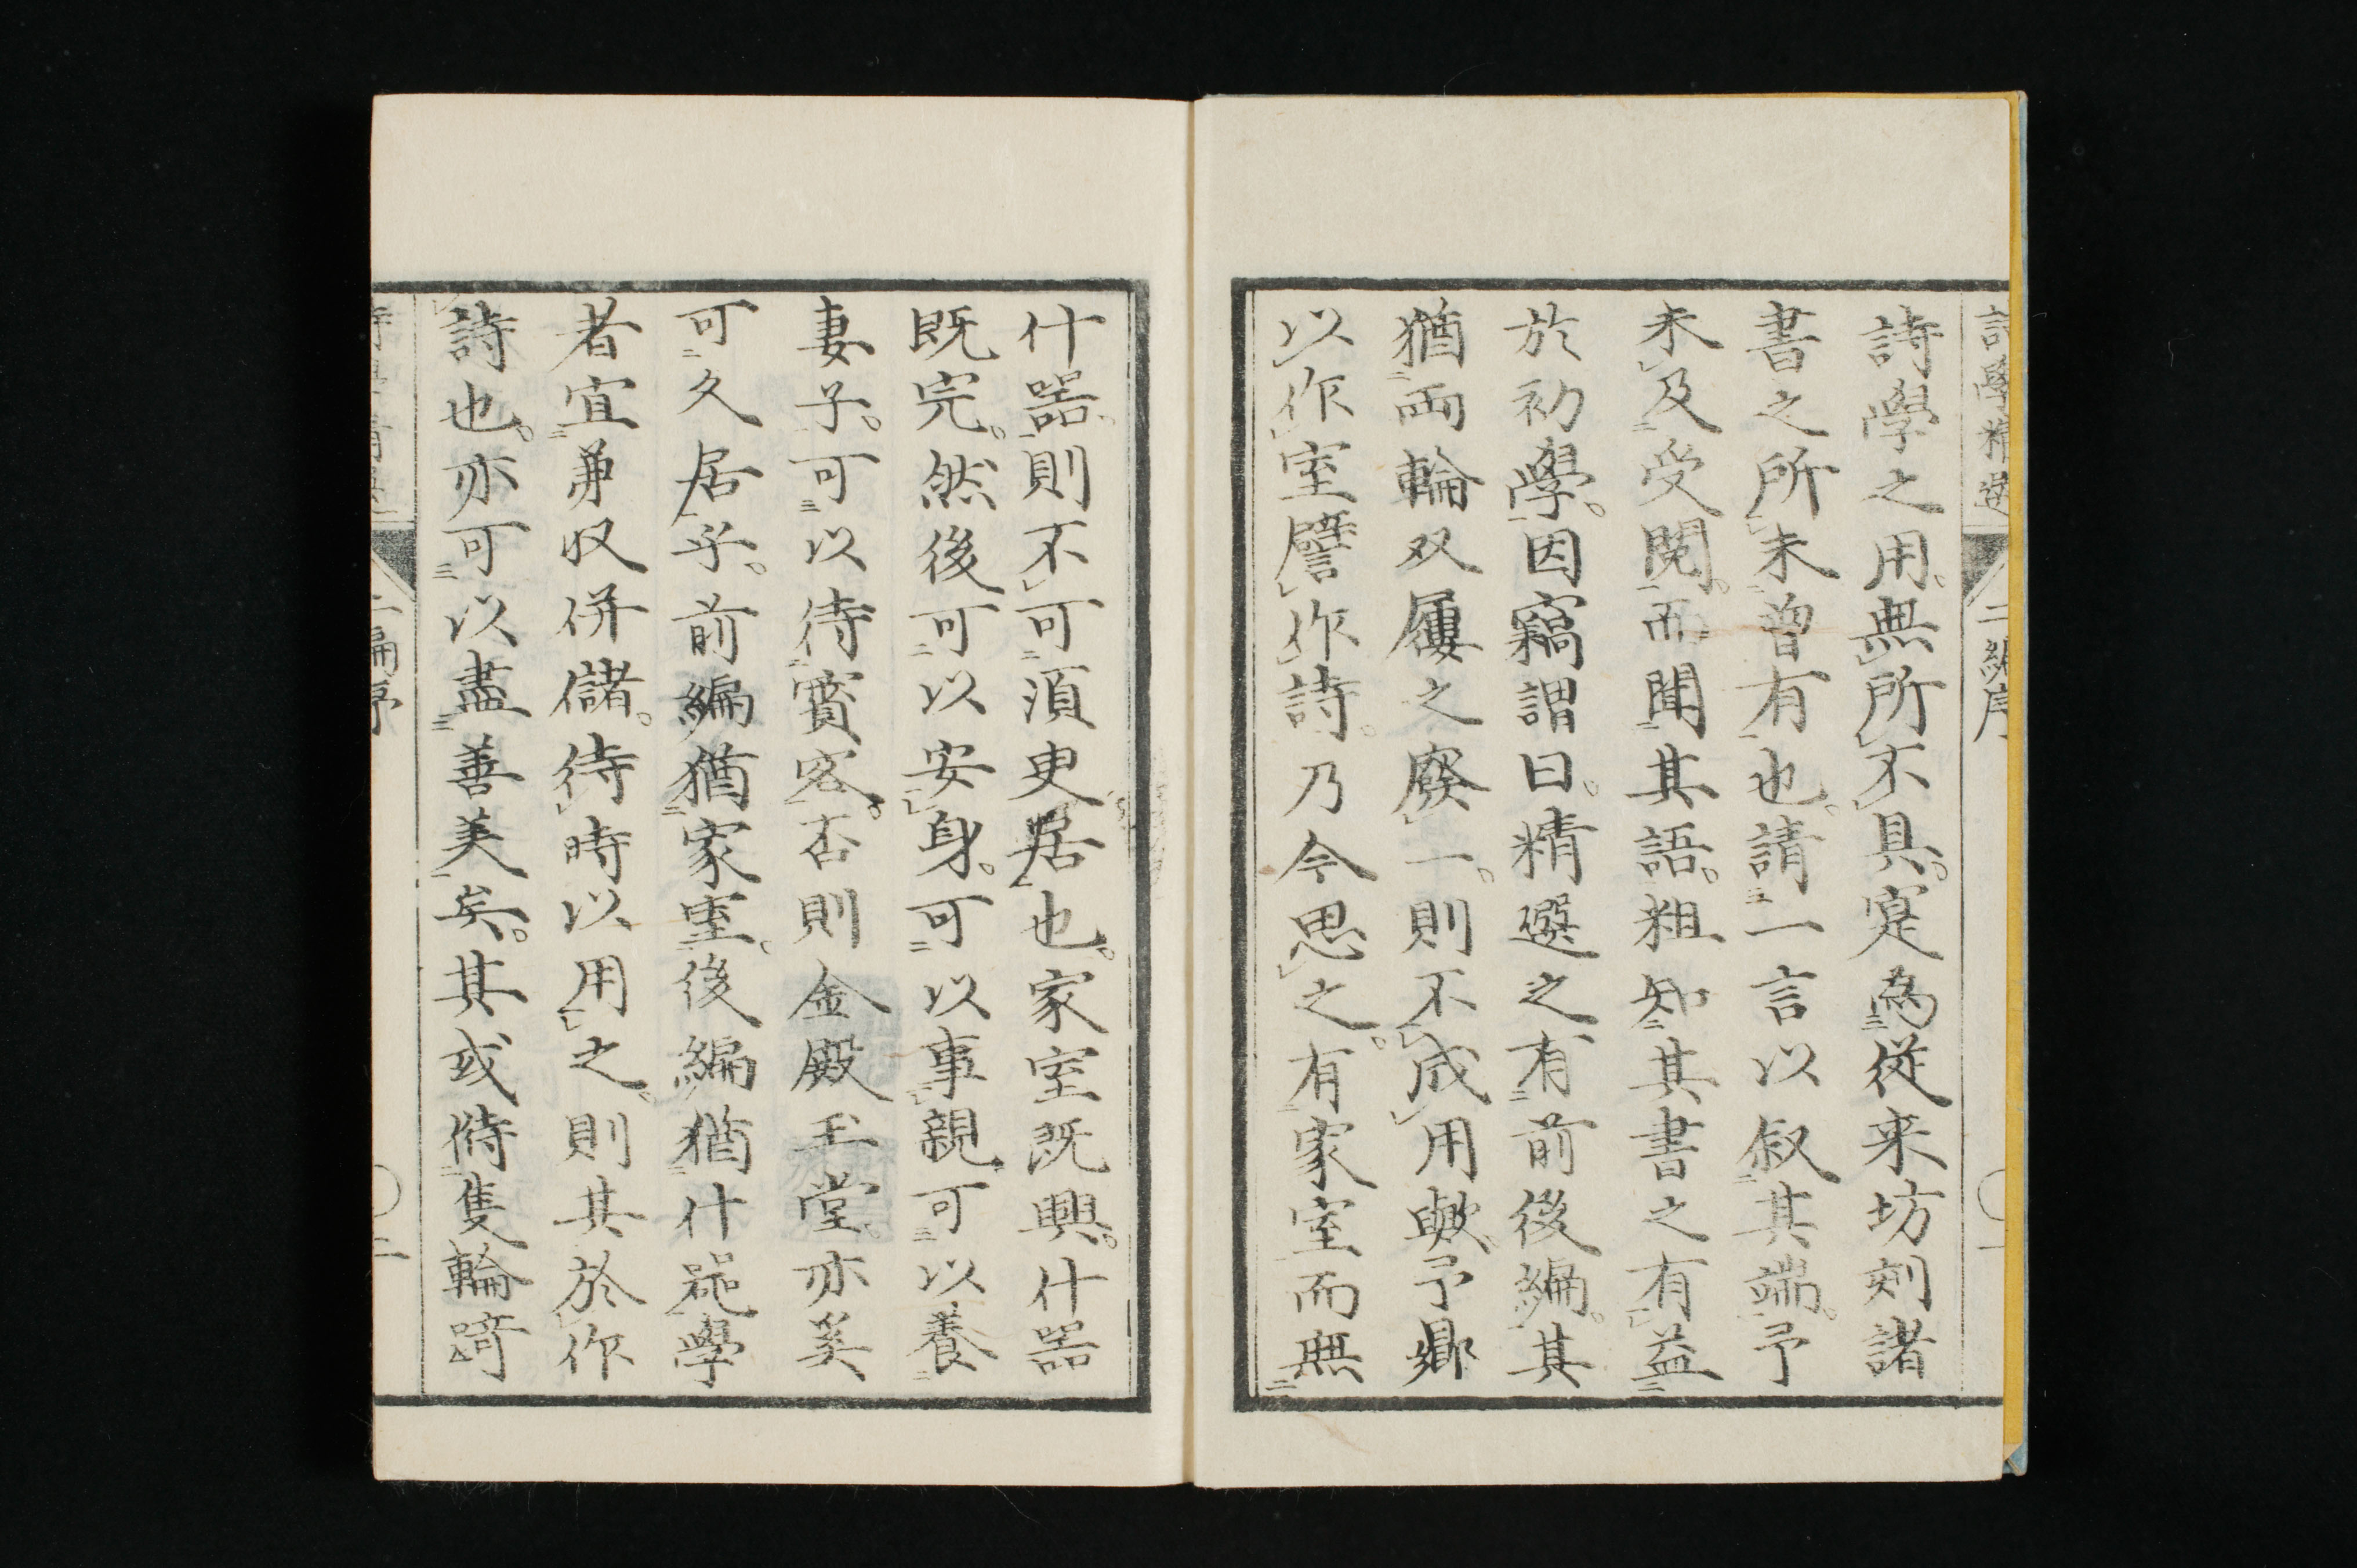 詩學精選 二編序 一
詩學之用。無所不具。寔為從来坊刻諸
書之所未曽有也。請一言以叙其端。予
未及受閱。而聞其語。粗知其書之有益
於初學。因竊謂曰。精選之有前後編。其
猶両輪双屨之廢一。則不成用歟。予郷
以作室譬作詩。乃今思之。有家室而無
什噐。則不可須臾居也。家室既興。什噐
既完。然後可以安身。可以事親。可以養
妻子。可以待賓客。否則金殿玉堂。亦奚
可久居乎。前編猶家室。後編猶什噐。學
者宜兼収併儲。待時以用之。則其於作
詩也。亦可以盡善美矣。其或偫隻輪踦
二編序 二